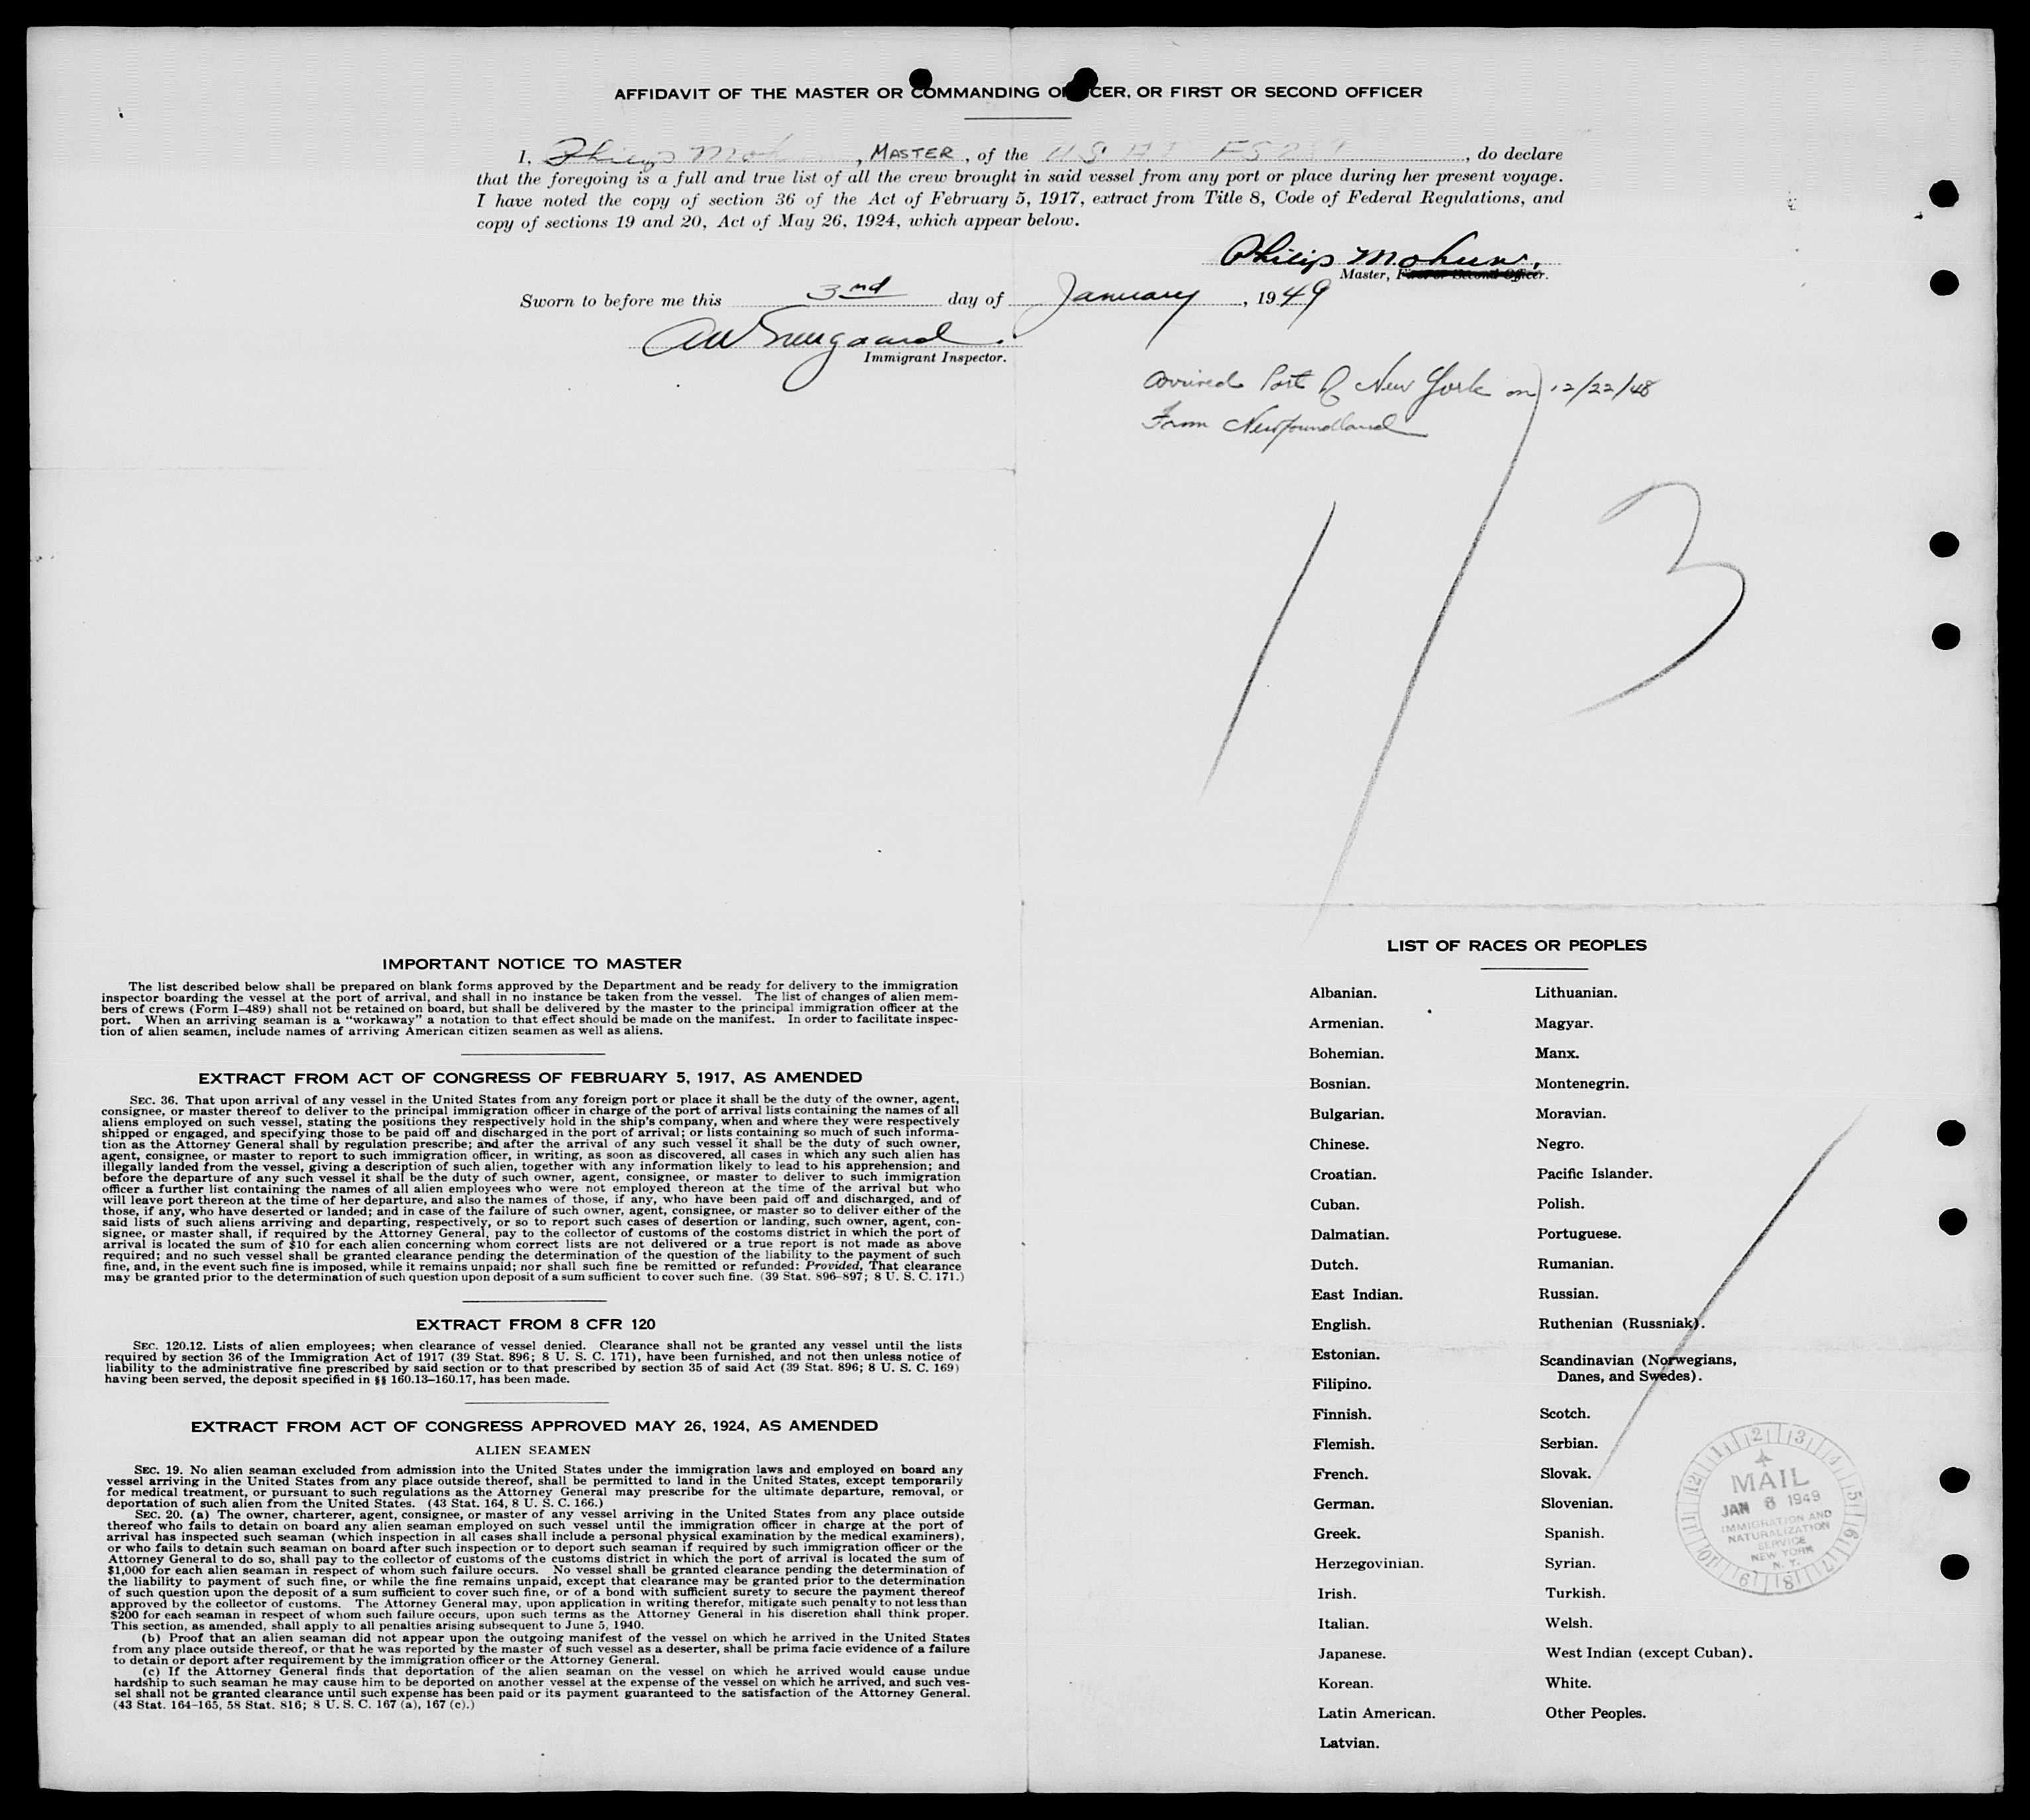 AFFIDAVIT OF THE MASTER OR COMMANDING OFFICER, OR FIRST OR SECOND OFFICER
I, Philip Moh , MASTER, of the U S A T FS 289, do declare
that the foregoing is a full and true list of all the crew brought in said vessel from any port or place during her present voyage.
I have noted the copy of section 36 of the Act of February 5, 1917, extract from Title 8, Code of Federal Regulations, and
copy of sections 19 and 20, Act of May 26, 1924, which appear below.
Philip Mohun.
Master, First or Second Officer.
Sworn to before me this 3rd day of January, 1949
Immigrant Inspector.
arrived Port of New York on 12/22/48
From Newfoundland
1/3
IMPORTANT NOTICE TO MASTER
The list described below shall be prepared on blank forms approved by the Department and be ready for delivery to the immigration
inspector boarding the vessel at the port of arrival, and shall in no instance be taken from the vessel. The list of changes of alien mem-
bers of crews (Form I-489) shall not be retained on board, but shall be delivered by the master to the principal immigration officer at the
port. When an arriving seaman is a "workaway" a notation to that effect should be made on the manifest. In order to facilitate inspec-
tion of alien seamen, include names of arriving American citizen seamen as well as aliens.
EXTRACT FROM ACT OF CONGRESS OF FEBRUARY 5, 1917, AS AMENDED
SEC. 36. That upon arrival of any vessel in the United States from any foreign port or place it shall be the duty of the owner, agent,
consignee, or master thereof to deliver to the principal immigration officer in charge of the port of arrival lists containing the names of all
aliens employed on such vessel, stating the positions they respectively hold in the ship's company, when and where they were respectively
shipped or engaged, and specifying those to be paid off and discharged in the port of arrival; or lists containing so much of such informa-
tion as the Attorney General shall by regulation prescribe; and after the arrival of any such vessel it shall be the duty of such owner,
agent, consignee, or master to report to such immigration officer, in writing, as soon as discovered, all cases in which any such alien has
illegally landed from the vessel, giving a description of such alien, together with any information likely to lead to his apprehension; and
before the departure of any such vessel it shall be the duty of such owner, agent, consignee, or master to deliver to such immigration
officer a further list containing the names of all alien employees who were not employed thereon at the time of the arrival but who
will leave port thereon at the time of her departure, and also the names of those, if any, who have been paid off and discharged, and of
those, if any, who have deserted or landed; and in case of the failure of such owner, agent, consignee, or master so to deliver either of the
said lists of such aliens arriving and departing, respectively, or so to report such cases of desertion or landing, such owner, agent, con-
signee, or master shall, if required by the Attorney General, pay to the collector of customs of the costoms district in which the port of
arrival is located the sum of $10 for each alien concerning whom correct lists are not delivered or a true report is not made as above
required; and no such vessel shall be granted clearance pending the determination of the question of the liability to the payment of such
fine, and, in the event such fine is imposed, while it remains unpaid; nor shall such fine be remitted or refunded: Provided, That clearance
may be granted prior to the determination of such question upon deposit of a sum sufficient to cover such fine. (39 Stat. 896-897; 8 U. S. C. 171.)
EXTRACT FROM 8 CFR 120
SEC. 120.12. Lists of alien employees; when clearance of vessel denied. Clearance shall not be granted any vessel until the lists
required by section 36 of the Immigration Act of 1917 (39 Stat. 896; 8 U. S. C. 171), have been furnished, and not then unless notice of
liability to the administrative fine prescribed by said section or to that prescribed by section 35 of said Act (39 Stat. 896; 8 U. S. C. 169)
having been served, the deposit specified in §§ 160.13-160.17, has been made.
EXTRACT FROM ACT OF CONGRESS APPROVED MAY 26, 1924, AS AMENDED
ALIEN SEAMEN
SEC. 19. No alien seaman excluded from admission into the United States under the immigration laws and employed on board any
vessel arriving in the United States from any place outside thereof, shall be permitted to land in the United States, except temporarily
for medical treatment, or pursuant to such regulations as the Attorney General may prescribe for the ultimate departure, removal, or
deportation of such alien from the United States. (43 Stat. 164, 8 U. S. C. 166.)
SEC. 20. (a) The owner, charterer, agent, consignee, or master of any vessel arriving in the United States from any place outside
thereof who fails to detain on board any alien seaman employed on such vessel until the immigration officer in charge at the port of
arrival has inspected such seaman (which inspection in all cases shall include a personal physical examination by the medical examiners),
or who fails to detain such seaman on board after such inspection or to deport such seaman if required by such immigration officer or the
Attorney General to do so, shall pay to the collector of customs of the customs district in which the port of arrival is located the sum of
$1,000 for each alien seaman in respect of whom such failure occurs. No vessel shall be granted clearance pending the determination of
the liability to payment of such fine, or while the fine remains unpaid, except that clearance may be granted prior to the determination
of such question upon the deposit of a sum sufficient to cover such fine, or of a bond with sufficient surety to secure the payment thereof
approved by the collector of customs. The Attorney General may, upon application in writing therefor, mitigate such penalty to not less than
$200 for each seaman in respect of whom such failure occurs, upon such terms as the Attorney General in his discretion shall think proper.
This section, as amended, shall apply to all penalties arising subsequent to June 5, 1940.
(b) Proof that an alien seaman did not appear upon the outgoing manifest of the vessel on which he arrived in the United States
from any place outside thereof, or that he was reported by the master of such vessel as a deserter, shall be prima facie evidence of a failure
to detain or deport after requirement by the immigration officer or the Attorney General.
(c) If the Attorney General finds that deportation of the alien seaman on the vessel on which he arrived would cause undue
hardship to such seaman he may cause him to be deported on another vessel at the expense of the vessel on which he arrived, and such ves-
sel shall not be granted clearance until such expense has been paid or its payment guaranteed to the satisfaction of the Attorney General.
(43 Stat. 164-165, 58 Stat. 816; 8 U. S. C. 167 (a), 167 (c).)
LIST OF RACES OR PEOPLES
Albanian.
Armenian.
Bohemian.
Bosnian.
Bulgarian.
Chinese.
Croatian.
Cuban.
Dalmatian.
Dutch.
East Indian.
English.
Estonian.
Filipino.
Finnish.
Flemish.
French.
German.
Greek.
Herzegovinian.
Irish.
Italian.
Japanese.
Korean.
Latin American.
Latvian.
Lithuanian.
Magyar.
Manx.
Montenegrin.
Moravian.
Negro.
Pacific Islander.
Polish.
Portuguese.
Rumanian.
Russian.
Ruthenian (Russniak).
Scandinavian (Norwegians,
Danes, and Swedes).
Scotch.
Serbian.
Slovak.
Slovenian.
Spanish.
Syrian.
Turkish.
Welsh.
West Indian (except Cuban).
White.
Other Peoples.
MAIL
JAN 6 1949
IMMIGRATION AND
NATURALIZATION
SERVICE
NEW YORK
N. Y.